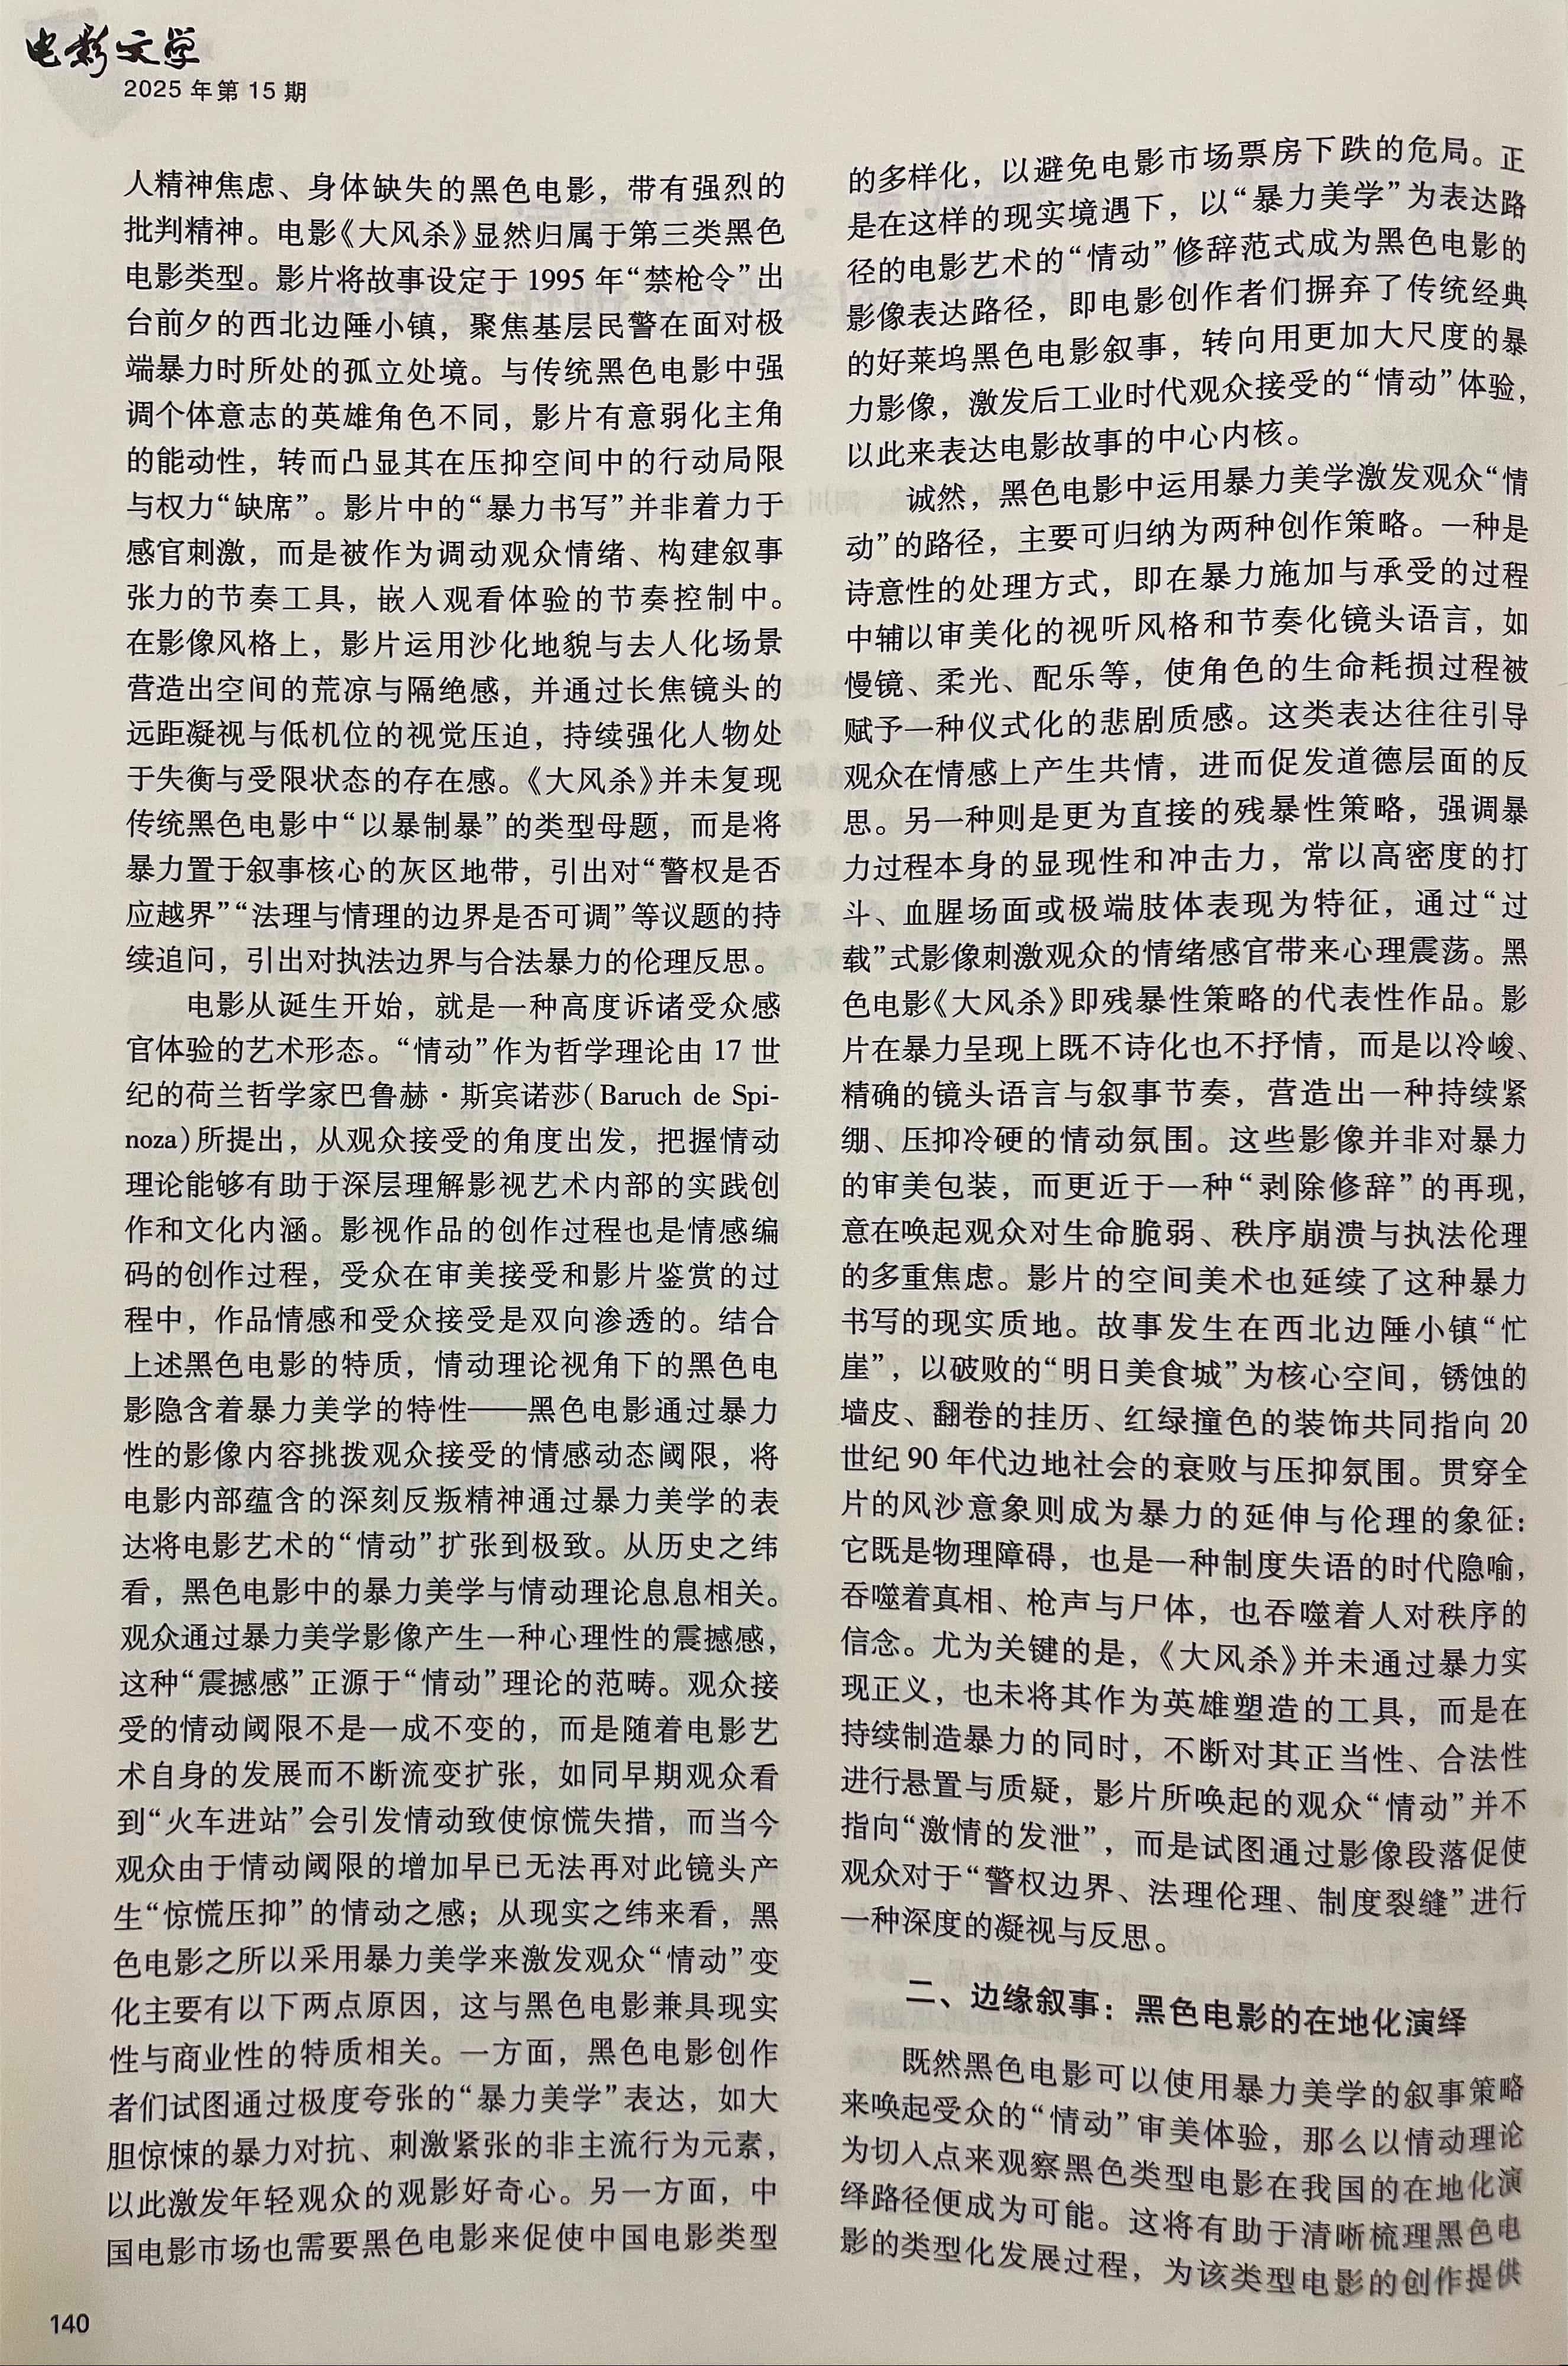 电影文学
2025 年第 15 期
人精神焦虑、身体缺失的黑色电影，带有强烈的
批判精神。电影《大风杀》显然归属于第三类黑色
电影类型。影片将故事设定于 1995 年“禁枪令”出
台前夕的西北边陲小镇，聚焦基层民警在面对极
端暴力时所处的孤立处境。与传统黑色电影中强
调个体意志的英雄角色不同，影片有意弱化主角
的能动性，转而凸显其在压抑空间中的行动局限
与权力“缺席”。影片中的“暴力书写”并非着力于
感官刺激，而是被作为调动观众情绪、构建叙事
张力的节奏工具，嵌入观看体验的节奏控制中。
在影像风格上，影片运用沙化地貌与去人化场景
营造出空间的荒凉与隔绝感，并通过长焦镜头的
远距凝视与低机位的视觉压迫，持续强化人物处
于失衡与受限状态的存在感。《大风杀》并未复现
传统黑色电影中“以暴制暴”的类型母题，而是将
暴力置于叙事核心的灰区地带，引出对“警权是否
应越界”“法理与情理的边界是否可调”等议题的持
续追问，引出对执法边界与合法暴力的伦理反思。
电影从诞生开始，就是一种高度诉诸受众感
官体验的艺术形态。“情动”作为哲学理论由 17 世
纪的荷兰哲学家巴鲁赫·斯宾诺莎(Baruch de Spi-
noza)所提出，从观众接受的角度出发，把握情动
理论能够有助于深层理解影视艺术内部的实践创
作和文化内涵。影视作品的创作过程也是情感编
码的创作过程，受众在审美接受和影片鉴赏的过
程中，作品情感和受众接受是双向渗透的。结合
上述黑色电影的特质，情动理论视角下的黑色电
影隐含着暴力美学的特性——黑色电影通过暴力
性的影像内容挑拨观众接受的情感动态阈限，将
电影内部蕴含的深刻反叛精神通过暴力美学的表
达将电影艺术的“情动”扩张到极致。从历史之纬
看，黑色电影中的暴力美学与情动理论息息相关。
观众通过暴力美学影像产生一种心理性的震撼感，
这种“震撼感”正源于“情动”理论的范畴。观众接
受的情动阈限不是一成不变的，而是随着电影艺
术自身的发展而不断流变扩张，如同早期观众看
到“火车进站”会引发情动致使惊慌失措，而当今
观众由于情动阈限的增加早已无法再对此镜头产
生“惊慌压抑”的情动之感；从现实之纬来看，黑
色电影之所以采用暴力美学来激发观众“情动”变
化主要有以下两点原因，这与黑色电影兼具现实
性与商业性的特质相关。一方面，黑色电影创作
者们试图通过极度夸张的“暴力美学”表达，如大
胆惊悚的暴力对抗、刺激紧张的非主流行为元素，
以此激发年轻观众的观影好奇心。另一方面，中
国电影市场也需要黑色电影来促使中国电影类型
的多样化，以避免电影市场票房下跌的危局。正
是在这样的现实境遇下，以“暴力美学”为表达路
径的电影艺术的“情动”修辞范式成为黑色电影的
影像表达路径，即电影创作者们摒弃了传统经典
的好莱坞黑色电影叙事，转向用更加大尺度的暴
力影像，激发后工业时代观众接受的“情动”体验，
以此来表达电影故事的中心内核。
诚然，黑色电影中运用暴力美学激发观众“情
动”的路径，主要可归纳为两种创作策略。一种是
诗意性的处理方式，即在暴力施加与承受的过程
中辅以审美化的视听风格和节奏化镜头语言，如
慢镜、柔光、配乐等，使角色的生命耗损过程被
赋予一种仪式化的悲剧质感。这类表达往往引导
观众在情感上产生共情，进而促发道德层面的反
思。另一种则是更为直接的残暴性策略，强调暴
力过程本身的显现性和冲击力，常以高密度的打
斗、血腥场面或极端肢体表现为特征，通过“过
载”式影像刺激观众的情绪感官带来心理震荡。黑
色电影《大风杀》即残暴性策略的代表性作品。影
片在暴力呈现上既不诗化也不抒情，而是以冷峻、
精确的镜头语言与叙事节奏，营造出一种持续紧
绷、压抑冷硬的情动氛围。这些影像并非对暴力
的审美包装，而更近于一种“剥除修辞”的再现，
意在唤起观众对生命脆弱、秩序崩溃与执法伦理
的多重焦虑。影片的空间美术也延续了这种暴力
书写的现实质地。故事发生在西北边陲小镇“忙
崖”，以破败的“明日美食城”为核心空间，锈蚀的
墙皮、翻卷的挂历、红绿撞色的装饰共同指向 20
世纪 90 年代边地社会的衰败与压抑氛围。贯穿全
片的风沙意象则成为暴力的延伸与伦理的象征：
它既是物理障碍，也是一种制度失语的时代隐喻，
吞噬着真相、枪声与尸体，也吞噬着人对秩序的
信念。尤为关键的是，《大风杀》并未通过暴力实
现正义，也未将其作为英雄塑造的工具，而是在
持续制造暴力的同时，不断对其正当性、合法性
进行悬置与质疑，影片所唤起的观众“情动”并不
指向“激情的发泄”，而是试图通过影像段落促使
观众对于“警权边界、法理伦理、制度裂缝”进行
一种深度的凝视与反思。
二、边缘叙事：黑色电影的在地化演绎
既然黑色电影可以使用暴力美学的叙事策略
来唤起受众的“情动”审美体验，那么以情动理论
为切入点来观察黑色类型电影在我国的在地化演
绎路径便成为可能。这将有助于清晰梳理黑色电
影的类型化发展过程，为该类型电影的创作提供
140